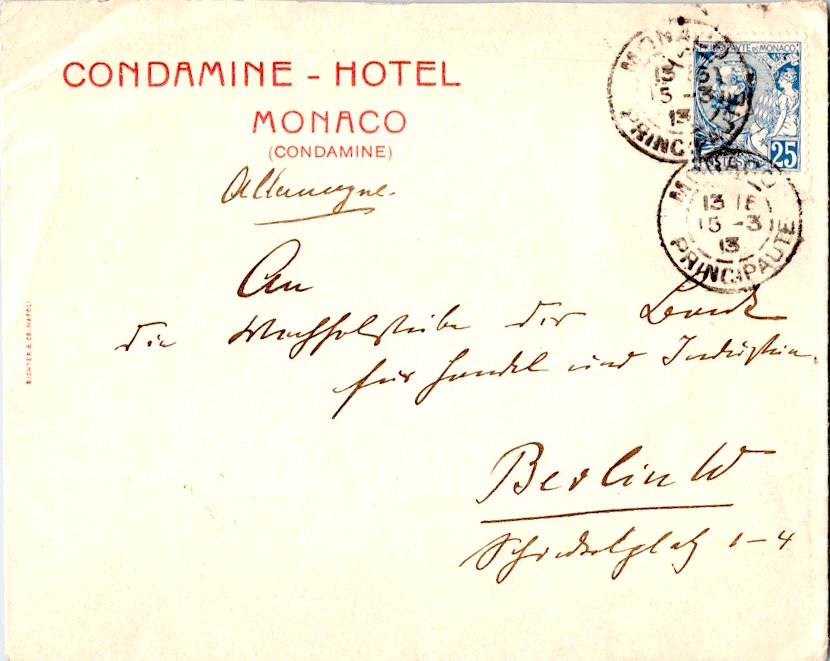 CONDAMINE - HOTEL
MONACO
(CONDAMINE)
PRINCIPAUTE DE MONACO
POSTES
25
MONACO
15 -3
13
PRINCIPAUTE
MONACO
13 15
15 -3
13
PRINCIPAUTE
Allemagne.
An
die Wechselstube der Bank
für Handel und Industrie.
Berlin W
1-4
RICHTER & Co. NAPOLI